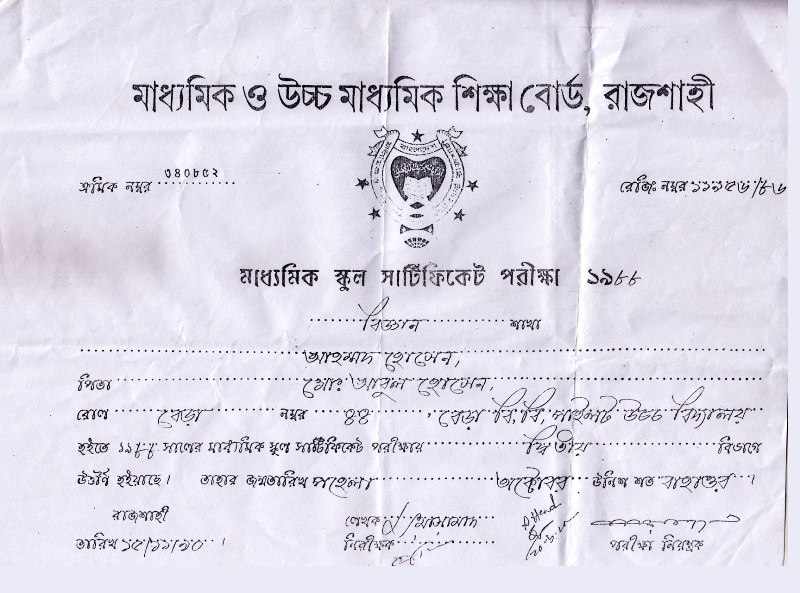 মাধ্যমিক ও উচ্চ মাধ্যমিক শিক্ষা বোর্ড, রাজশাহী
ক্রমিক নম্বর ৩৪০৮৫২
রেজিঃ নম্বর ১১১৫৬/৮৬
মাধ্যমিক স্কুল সার্টিফিকেট পরীক্ষা ১৯৮৮
বিজ্ঞান শাখা
আহম্মদ হোসেন,
পিতা মোঃ আবুল হোসেন,
রোল বেড়া নম্বর ৪৪, বেড়া বি, বি, পাইলট উচ্চ বিদ্যালয়
হইতে ১৯৮৮ সালের মাধ্যমিক স্কুল সার্টিফিকেট পরীক্ষায় দ্বিতীয় বিভাগে
উত্তীর্ণ হইয়াছে। তাহার জন্মতারিখ পহেলা অক্টোবর উনিশ শত বাহাত্তর।
রাজশাহী
লেখক
তারিখ ১৫/১১/৯০।
নিরীক্ষক
পরীক্ষা নিয়ন্ত্রক